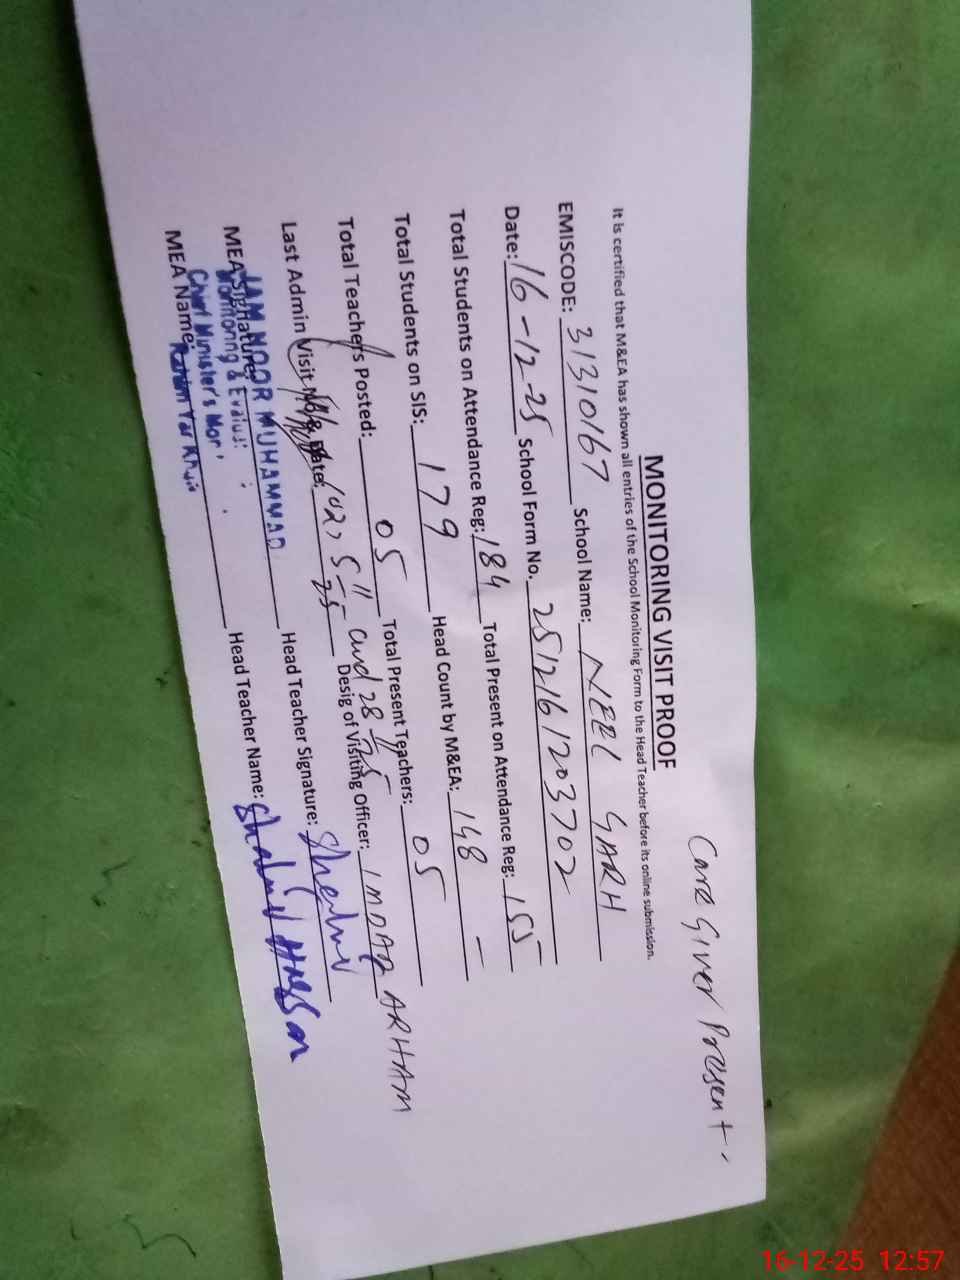 Care Giver Present.
MONITORING VISIT PROOF
It is certified that M&EA has shown all entries of the School Monitoring Form to the Head Teacher before its online submission.
EMISCODE: 31310167 School Name: NEEL GARH
Date: 16-12-25 School Form No. 2512161203702
Total Students on Attendance Reg: 184 Total Present on Attendance Reg: 155
Total Students on SIS: 179 Head Count by M&EA: 148
Total Teachers Posted: 05 Total Present Teachers: 05
Last Admin Visit No & Date: and 28 Desig of Visiting Officer: ARHAM
MEA Signature: Head Teacher Signature:
JAM NOOR MUHAMMAD
Monitoring &
Chief Minister's
MEA Name: Head Teacher Name: Shahid Hassan
16-12-25 12:57